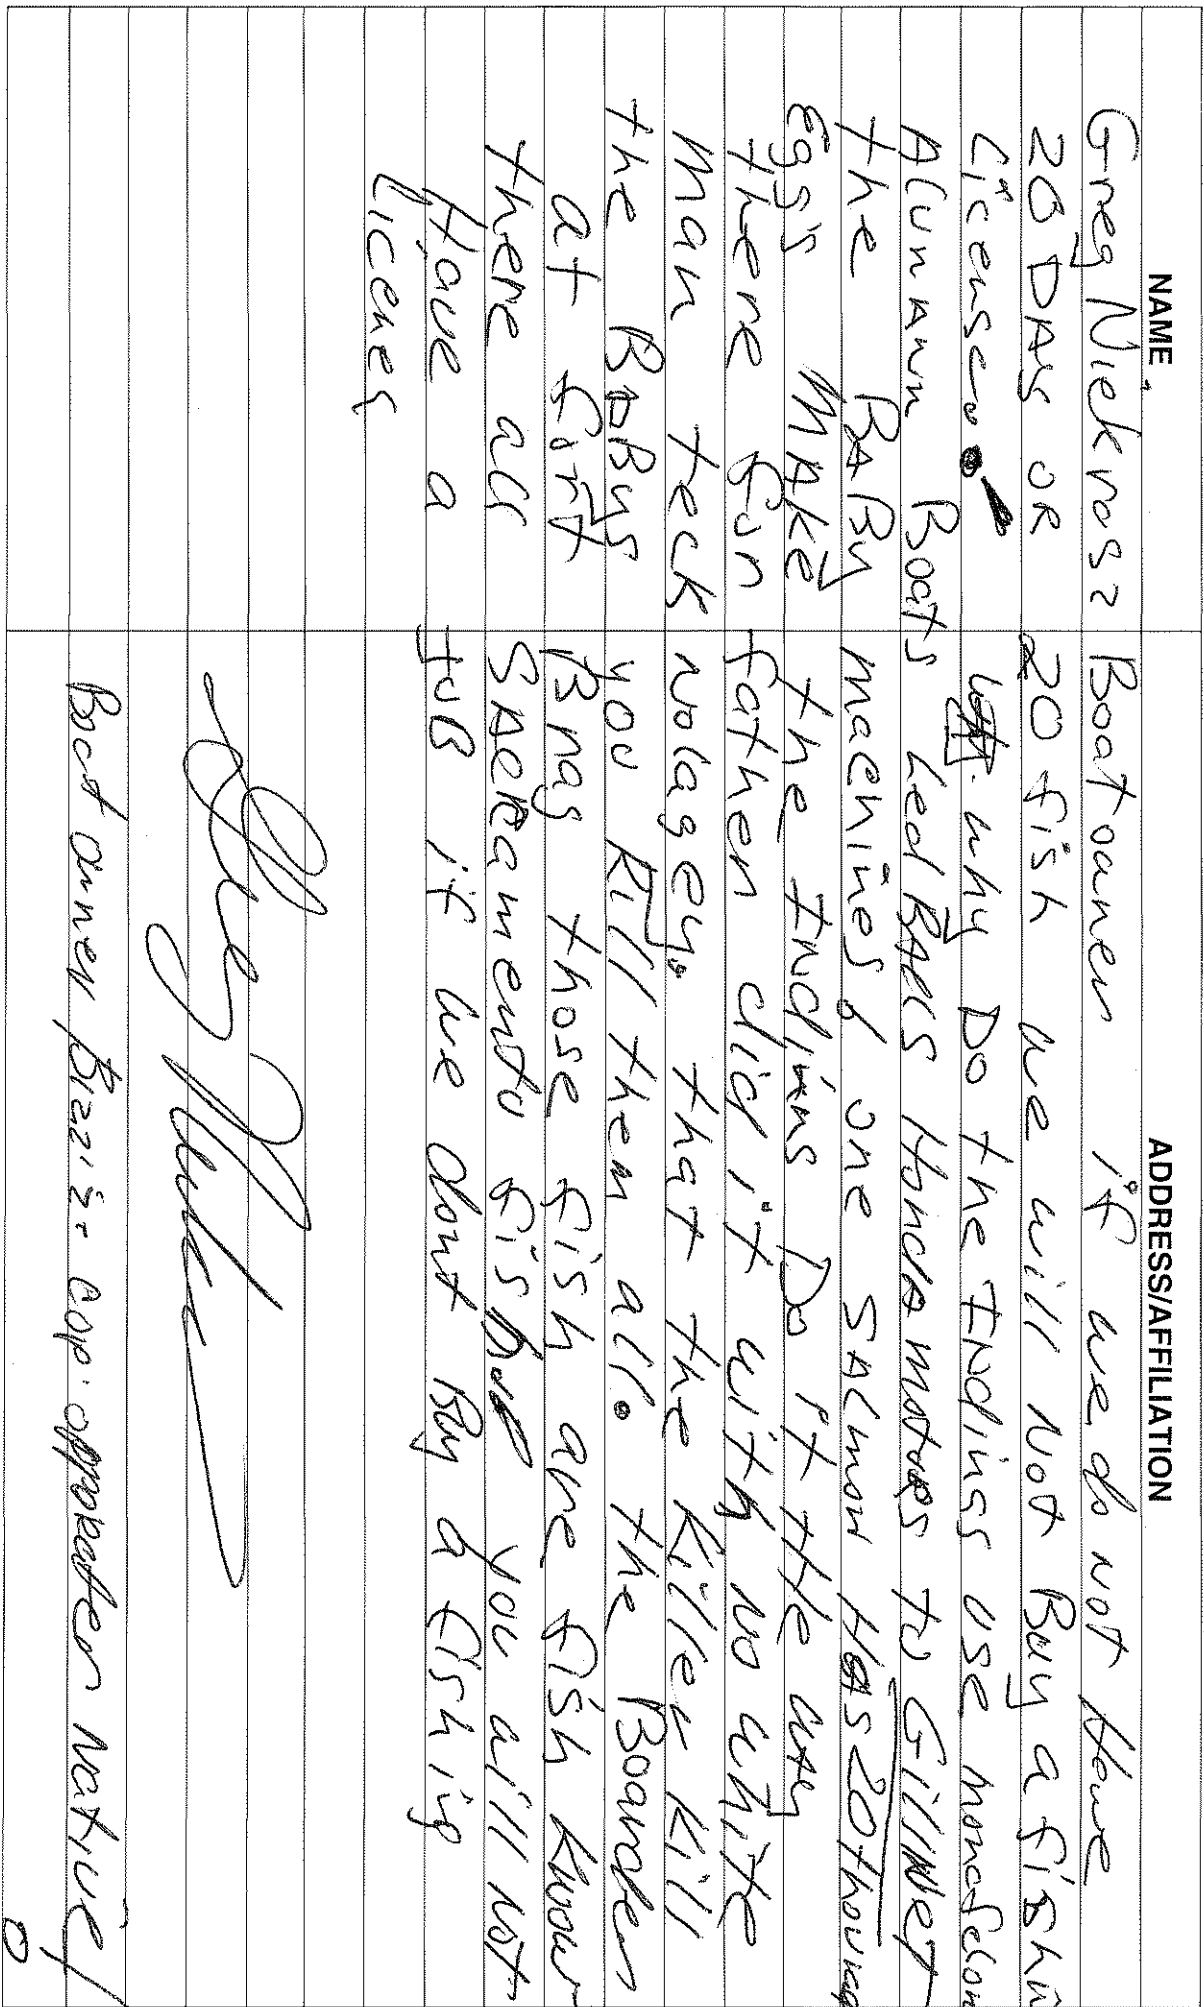 NAME ADDRESS/AFFILIATION
Greg Niekrasz Boatowner if we do not Have
20 DAYS OR 20 fish we will Not Buy a fishin
License. why Do the INDings use monofelom
Alunann Boats Led BALLS Honda motors to GillNet
the BABy machines & one SALmon HAS 20 thousand
Egs's MAKE the INDians Do it tHe way
there fun father did it with no white
man teck nolagey. that the Killer Kill
the BABys you Kill them all. the Boarder
at Girt Brags those fish are fish Know
there all SACRamento fish you will not
Have a JOB if we dont Buy a fishing
licenes
Boat owner Bizzi's cap. opperater Native!